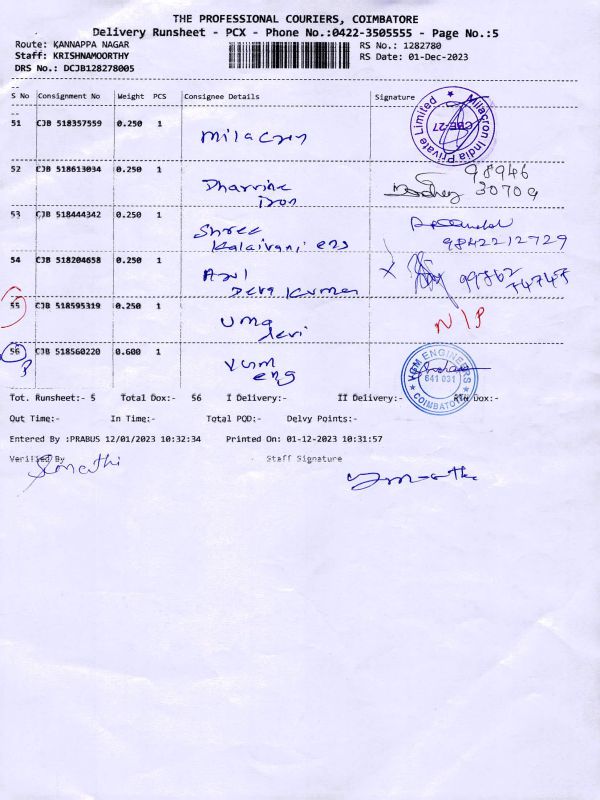 THE PROFESSIONAL COURIERS, COIMBATORE
Delivery Runsheet - PCX - Phone No.:0422-3505555 - Page No.:5
Route: KANNAPPA NAGAR
Staff: KRISHNAMOORTHY
DRS No.: DCJB128278005
RS No.: 1282780
RS Date: 01-Dec-2023
S No Consignment No Weight PCS Consignee Details Signature
51 CJB 518357559 0.250 1 Milacron
Milacron India Private Limited
CBE-27
52 CJB 518613034 0.250 1 Dharvine Iron
98946
30709
53 CJB 518444342 0.250 1 Shree Kalaivani eng
9842212729
54 CJB 518204658 0.250 1 Arul Deva Kumar
X 99862
74745
55 CJB 518595319 0.250 1 Uma devi N/P
56 CJB 518560220 0.600 1 VGM eng
VGM ENGINEERS
641 031
COIMBATORE
Tot. Runsheet:- 5 Total Dox:- 56 I Delivery:- II Delivery:- RTN Dox:-
Out Time:- In Time:- Total POD:- Delvy Points:-
Entered By :PRABUS 12/01/2023 10:32:34 Printed On: 01-12-2023 10:31:57
Verified By Staff Signature